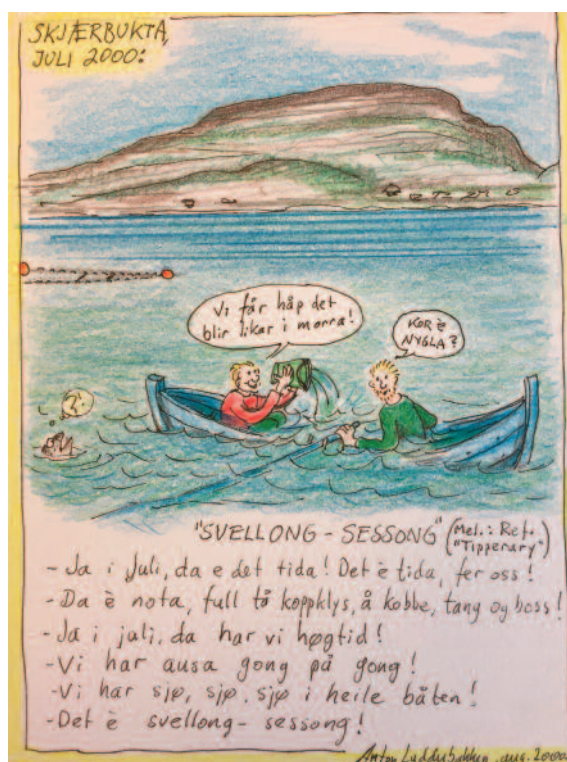 SKJÆRBUKTA,
JULI 2000:
Vi får håp det
blir likar i morra!
KOR È
NYGLA?
?
"SVELLONG - SESSONG" (Mel.: Ref.
"Tipperary")
- Ja i juli, da e det tida! Det è tida, fer oss!
- Da è nota, full tå koppklys, å kobbe, tang og boss!
- Ja i juli, da har vi høgtid!
- Vi har ausa gong på gong!
- Vi har sjø, sjø, sjø i heile båten!
- Det è svellong - sessong!
Anton aug. 2000